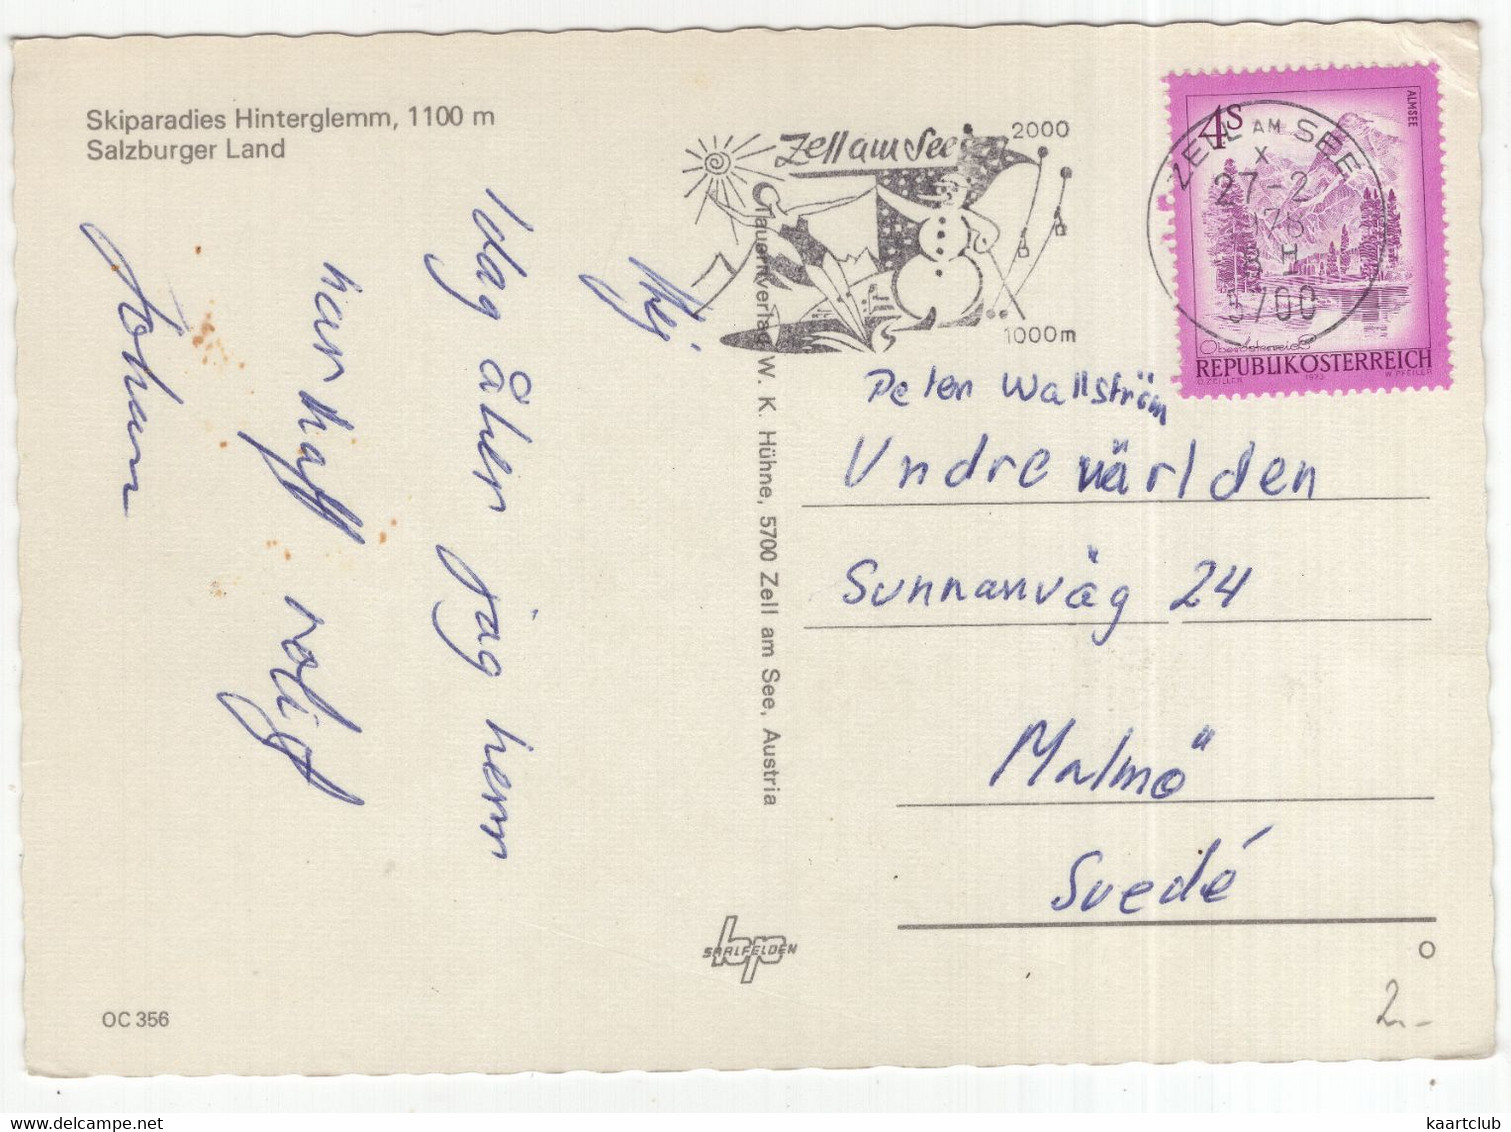 Skiparadies Hinterglemm, 1100 m
Salzburger Land
Hej
Idag åker jag hem
har haft roligt
Johan
Tauernverlag W. K. Hühne, 5700 Zell am See, Austria
Zell am See
2000
1000m
ZELL AM SEE
x
27-2
5700
4S
ALMSEE
Oberösterreich
REPUBLIK ÖSTERREICH
O.ZEILLER 1973 W.PFEILER
Peter Wallström
Undrevärlden
Sunnanväg 24
Malmö
Suedé
bp
SAALFELDEN
OC 356
O
2.-
kaartclub